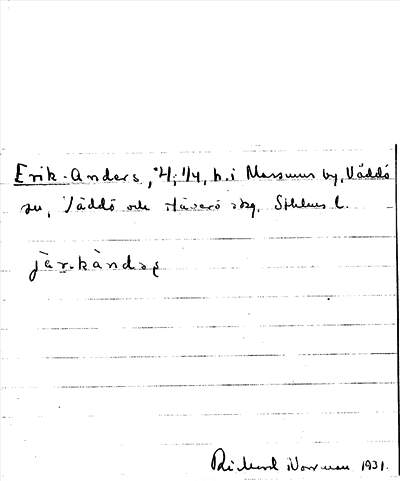 Erik-Anders, 4/, 1/4, h. i Massum by, Väddö
sn, Väddö och Häverö skg, Sthlms l.
järkàndaʂ
Rickard Norrman 1931.